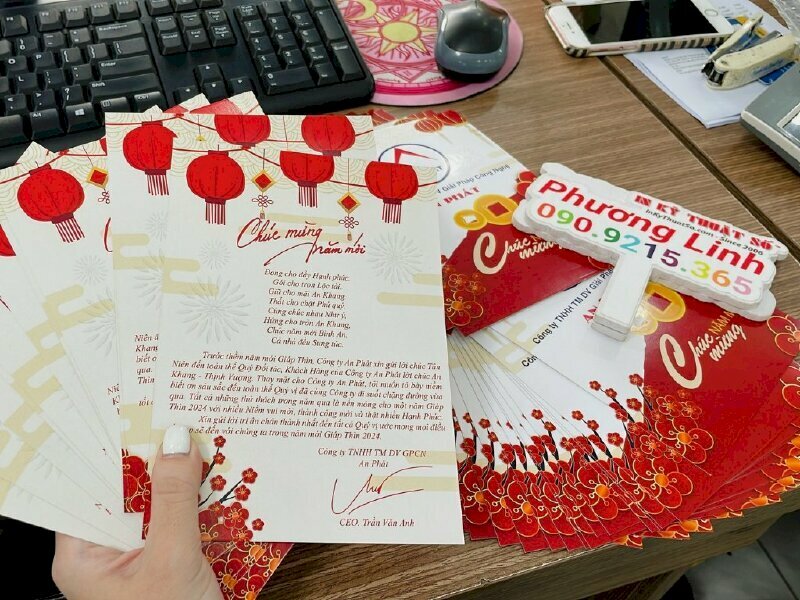 Chúc mừng
năm mới
Đong cho đầy Hạnh phúc.
Gói cho trọn Lộc tài.
Giữ cho mãi An Khang.
Thắt cho chặt Phú quý.
Cùng chúc nhau Như ý,
Hứng cho tròn An Khang,
Chúc năm mới Bình An,
Cả nhà đều Sung túc.
Trước thềm năm mới Giáp Thìn, Công ty An Phát xin gửi lời chúc Tân
Niên đến toàn thể Quý Đối tác, Khách Hàng của Công ty An Phát lời chúc An
Khang - Thịnh Vượng. Thay mặt cho Công ty An Phát, tôi muốn tỏ bày niềm
biết ơn sâu sắc đến toàn thể Quý vị đã cùng Công ty đi suốt chặng đường vừa
qua. Tất cả những thử thách trong năm qua là nền móng cho một năm Giáp
Thìn 2024 với nhiều Niềm vui mới, thành công mới và thật nhiều Hạnh Phúc.
Xin gửi lời tri ân chân thành nhất đến tất cả Quý vị ước mong mọi điều
sẽ đến với chúng ta trong năm mới Giáp Thìn 2024.
Công ty TNHH TM DV GPCN
An Phát
CEO. Trần Vân Anh
Giải Pháp Công Nghệ
PHÁT
Chúc
mừng
IN KỸ THUẬT SỐ
InKyThuatSo.com - Since 2006
Phương Linh
090.9215.365
Công ty TNHH TM DV Giải Pháp
AN
Chúc NĂM
mừng